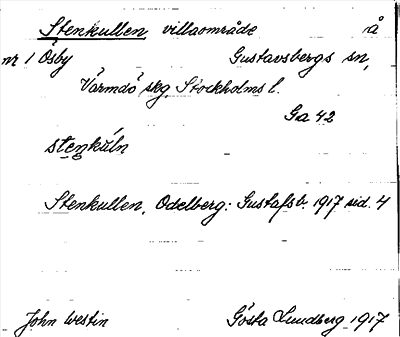 Stenkullen villaområde å
nr 1 Ösby Gustavsbergs sn,
Värmdö skg, Stockholms l.
Ga 42
stęŋkúln
Stenkullen, Odelberg: Gustafsb. 1917 sid. 4
John Westin Gösta Lundberg 1917